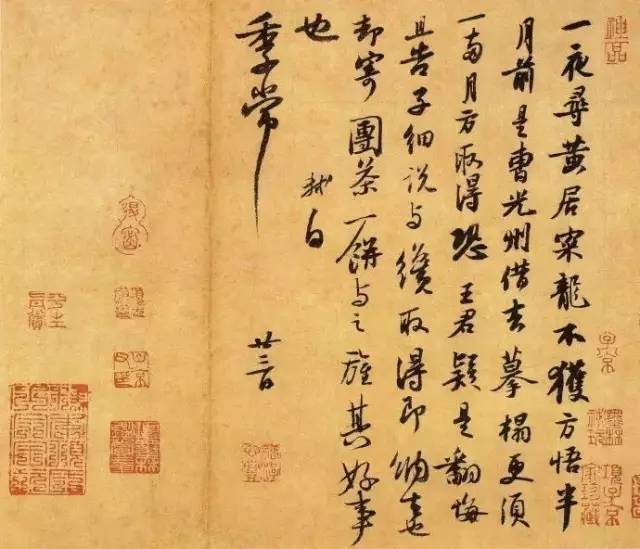 一夜尋黃居寀龍不獲方悟半
月前是曹光州借去摹搨更須
一兩月方取得恐王君疑是翻悔
且告子細說與纔取得即納去也
却寄團茶一餅與之旌其好事
也
軾白
季常
廿三日
神品
子京
項子京家珍藏